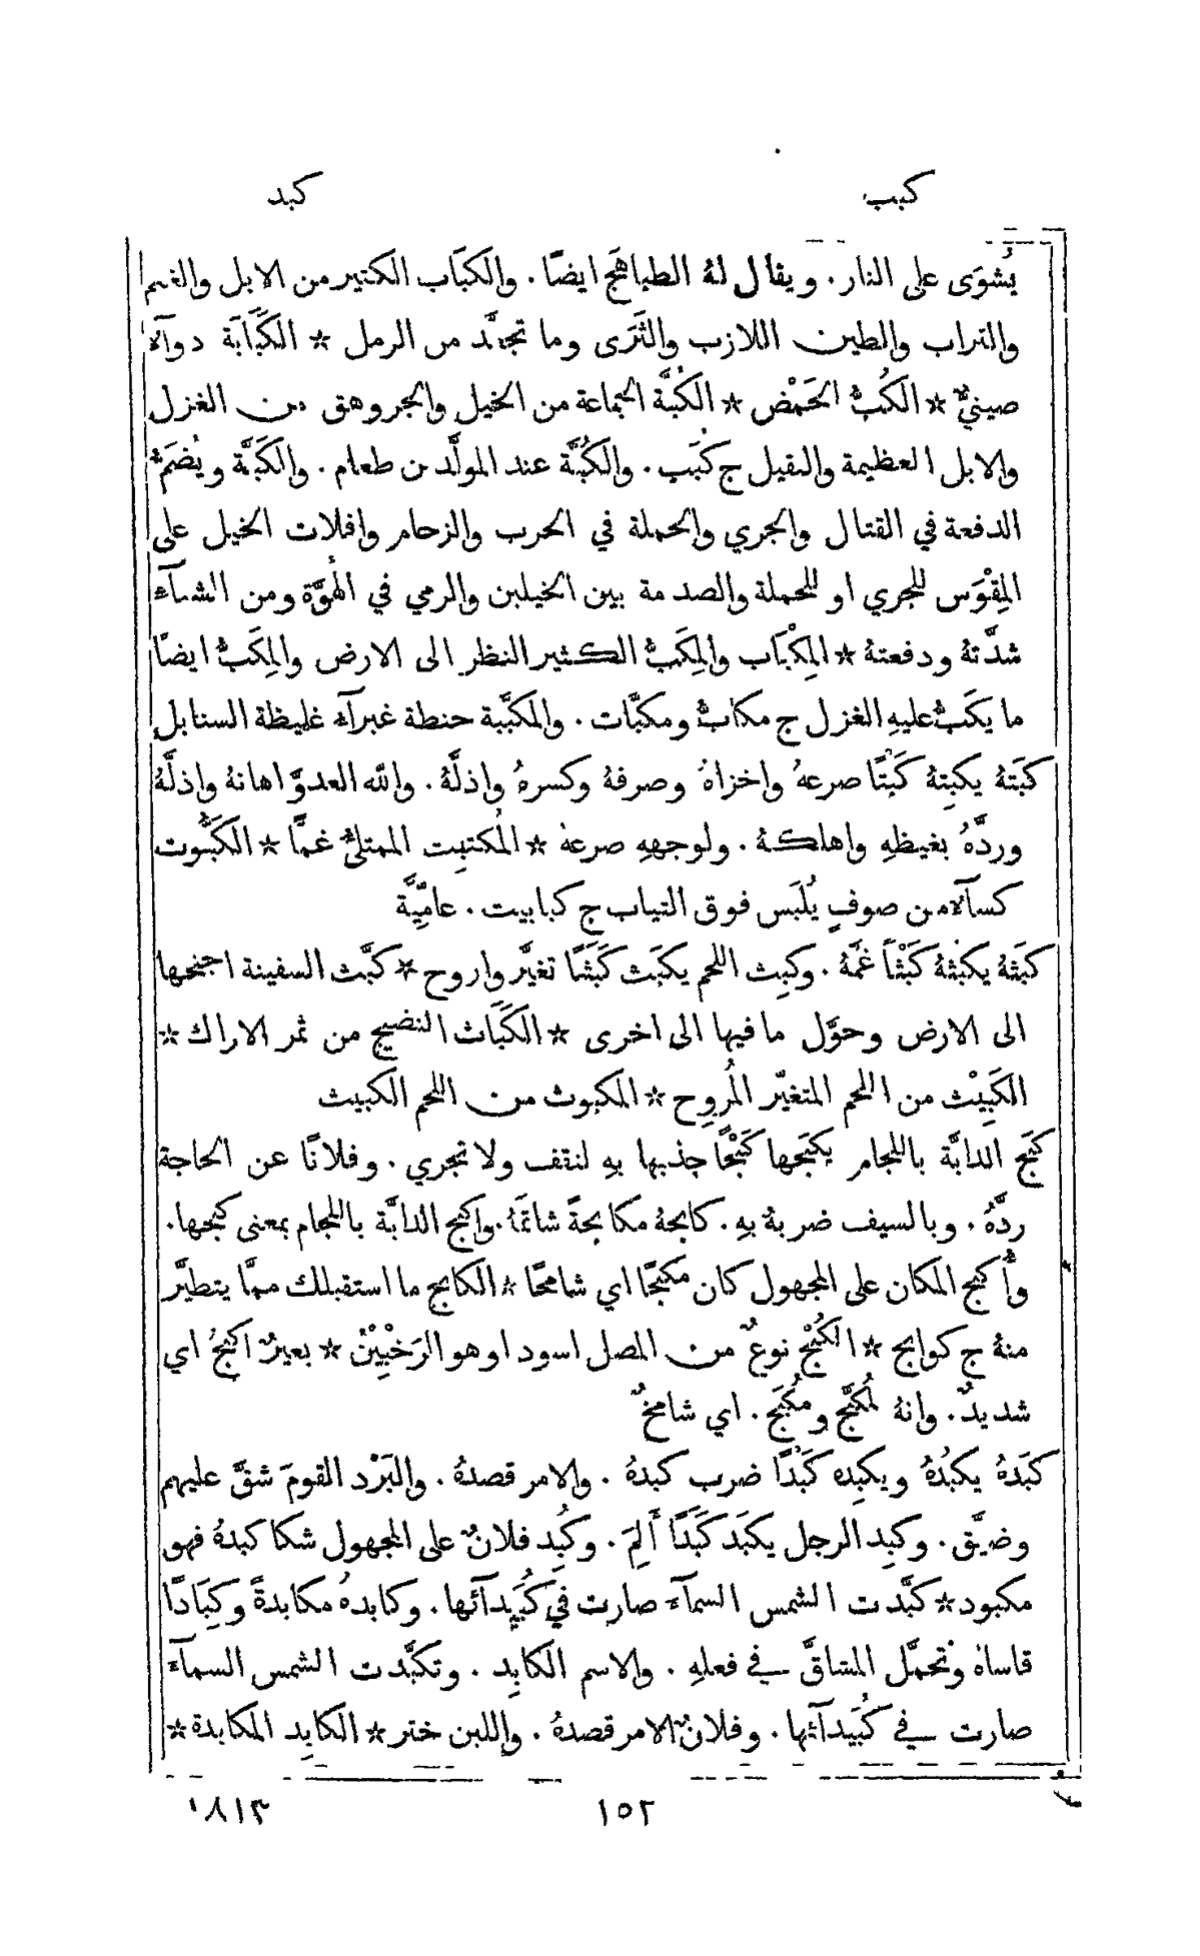 كبب
كبد
يُشوَى على النار. ويقال لهُ الطباهَج ايضًا. والكبَاب الكثير من الابل والغنم
والتراب والطين اللازب والثَرَى وما تجعَّد من الرمل * الكَبَابَة دوآء
صينيٌّ * الكُبُّ الحَمْض * الكُبَّة الجماعة من الخيل والجروهق من الغزل
والابل العظيمة والثقيل ج كُبَب. والكُبَّة عند المولَّدين طعام. والكَبَّة ويُضَمُّ
الدفعة في القتال والجري والحملة في الحرب والزحام وافلات الخيل على
المِقْوَس للجري او للحملة والصدمة بين الخيلين والرمي في الهُوَّة ومن الشتآء
شدَّتهُ ودفعتهُ * المِكْبَاب والمِكَبُّ الكثير النظر الى الارض والمِكَبُّ ايضًا
ما يكَبُّ عليهِ الغزل ج مكابُّ ومكبَّات. والمكبَّبة حنطة غبرآء غليظة السنابل
كبَتهُ يكبِتهُ كَبْتًا صرعهُ واخزاهُ وصرفهُ وكسرهُ واذلَّهُ. والله العدوَّ اهانهُ واذلَّهُ
وردَّهُ بغيظهِ واهلكهُ. ولوجههِ صرعهُ * المُكتبِت الممتلئُ غمًّا * الكَبُّوت
كسآء من صوفٍ يُلبَس فوق الثياب ج كبابيت. عامِّيَّة
كبَثهُ يكبثهُ كَبْثًا غمَّهُ. وكبِث اللحم يكبَث كَبَثًا تغيَّر واروح * كبَّث السفينة اجنحها
الى الارض وحوَّل ما فيها الى اخرى * الكَبَاث النضيج من ثمر الاراك *
الكَبِيْث من اللحم المتغيّر المُروِح * المكبوث من اللحم الكبيث
كبَح الدابَّة باللجام يكبَحها كَبْحًا جذبها بهِ لتقف ولا تجري. وفلانًا عن الحاجة
ردَّهُ. وبالسيف ضربهُ بهِ. كابحهُ مكابحةً شاتمهُ. واكبح الدابَّة باللجام بمعنى كبحها.
وأُكبح المكان على المجهول كان مكبحًا اي شامخًا * الكابح ما استقبلك ممَّا يتطيَّر
منهُ ج كوابح * الكُبْح نوعٌ من المصل اسود او هو الرَخْبِيْنُ * بعيرٌ اكبحُ اي
شديدٌ. وانهُ لمُكبَّح ومُكبَح. اي شامخٌ
كبَدهُ يكبُدهُ ويكبِده كَبْدًا ضرب كبدهُ. والامر قصدهُ. والبَرْد القومَ شقَّ عليهم
وضيَّق. وكبِد الرجل يكبَد كَبَدًا أَلِمَ. وكُبِد فلانٌ على المجهول شكا كبدهُ فهو
مكبود * كبَّدت الشمس السمآء صارت في كُبَيدآئها. وكابدهُ مكابدةً وكِبَادًا
قاساهُ وتحمَّل المشاقَّ في فعلهِ. والاسم الكابِد. وتكبَّدت الشمس السمآء
صارت في كُبَيدآئها. وفلانٌ الامر قصدهُ. واللبن ختر * الكابِد المكابدة *
١٥٢
١٨١٣